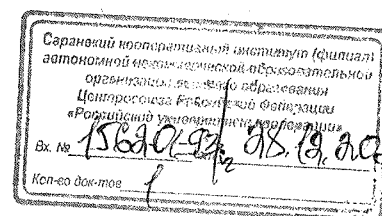 Саранский кооперативный институт (филиал)
автономной некоммерческой образовательной
организации высшего образования
Центросоюза Российской Федерации
«Российский университет кооперации»
Вх. № 28.12.20
Кол-во док-тов 1